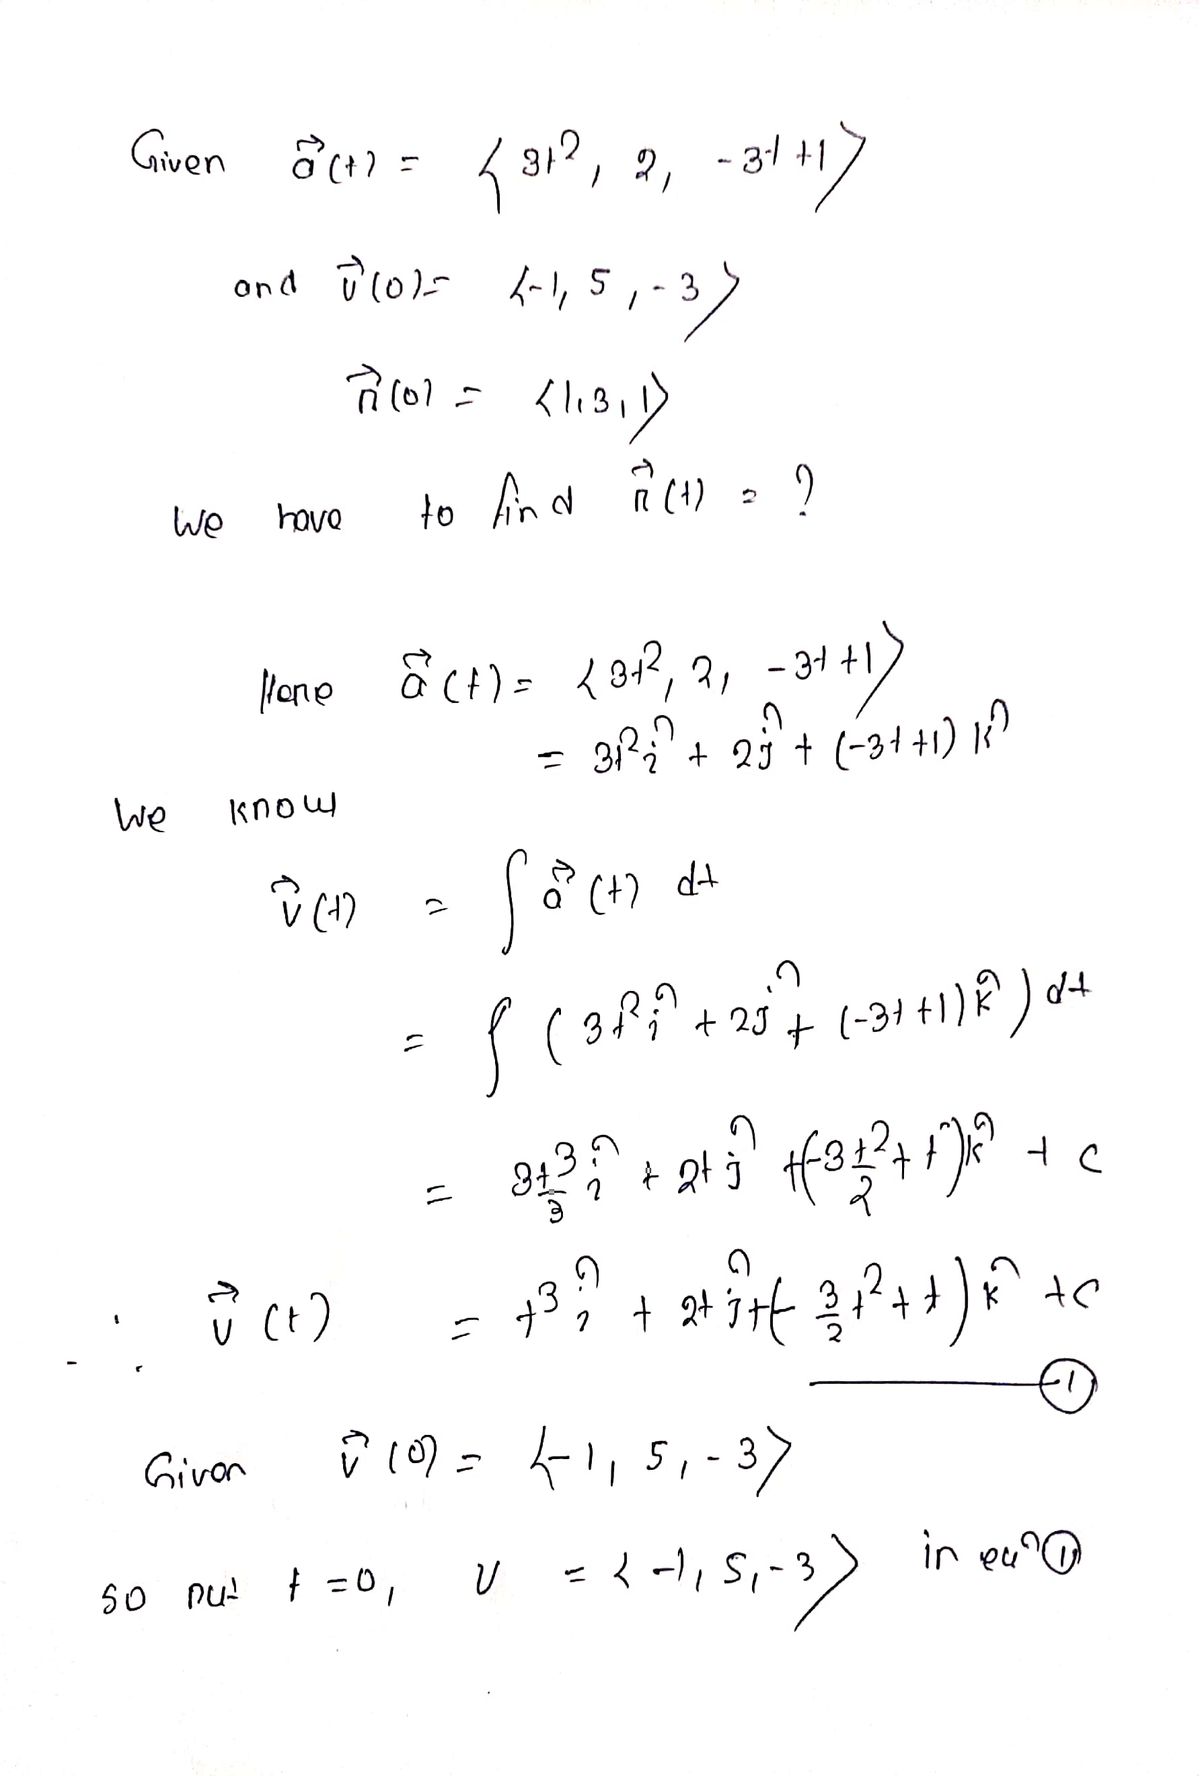 Given a⃗(t) = ⟨3t², 2, -3t+1⟩
and v⃗(0) = ⟨-1, 5, -3⟩
r⃗(0) = ⟨1, 3, 1⟩
We have to find r⃗(t) = ?
Here a⃗(t) = ⟨3t², 2, -3t+1⟩
= 3t² î + 2 ĵ + (-3t+1) k̂
We know
v⃗(t) = ∫ a⃗(t) dt
= ∫ (3t² î + 2 ĵ + (-3t+1) k̂) dt
= 3 t³/3 î + 2t ĵ + (-3 t²/2 + t) k̂ + c
∴ v⃗(t) = t³ î + 2t ĵ + (- 3/2 t² + t) k̂ + c
①
Given v⃗(0) = ⟨-1, 5, -3⟩
so put t = 0, v = ⟨-1, 5, -3⟩ in eqⁿ ①